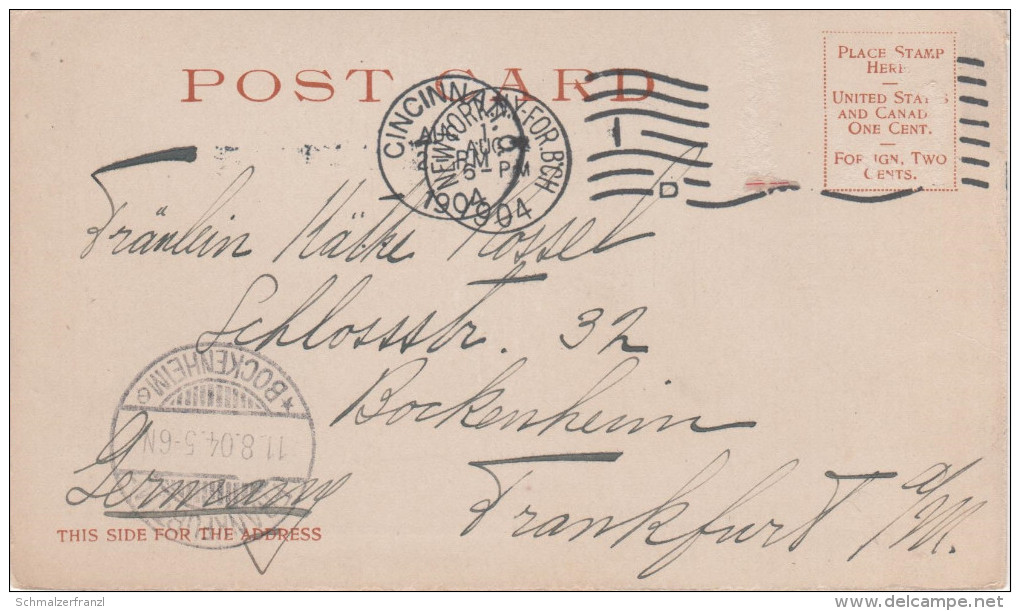 POST CARD
PLACE STAMP
HERE
UNITED STATES
AND CANAD
ONE CENT.
FOREIGN, TWO
CENTS.
CINCINNA
AUG
1904
NEW YORK, N.Y.-FOR.B'CH
AUG
6 - PM
1904
D
Fräulein Käthe Kossel
Schlossstr. 32
Bockenheim
Frankfurt a/M.
Germany
BOCKENHEIM
11.8.04.5-6N
THIS SIDE FOR THE ADDRESS
Schmalzerfranzl
delcampe.net